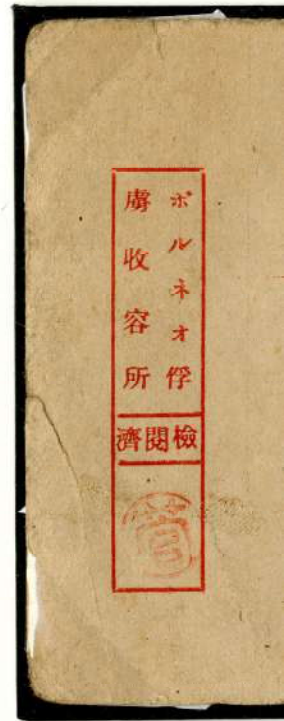 ボルネオ俘
虜收容所
檢閲濟
菅